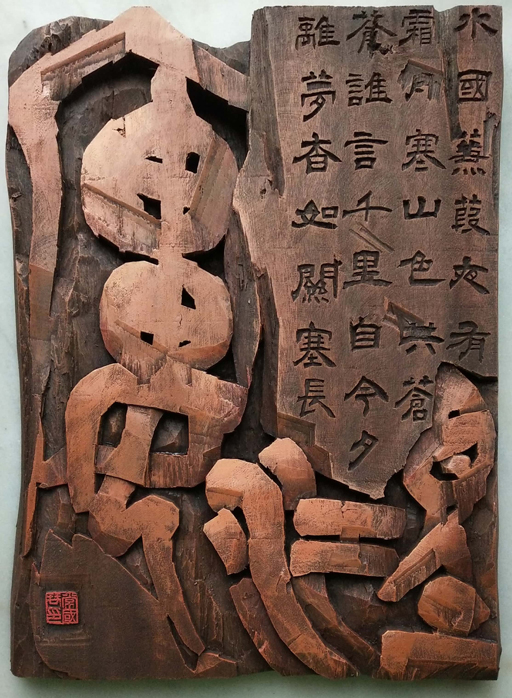 水國蒹葭夜有
霜月寒山色共蒼
蒼誰言千里自今夕
離夢杳如關塞長